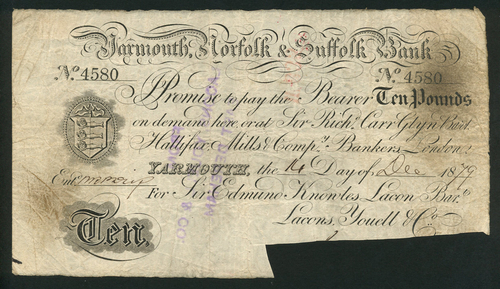 Yarmouth, Norfolk & Suffolk Bank
No. 4580 No. 4580
Promise to pay the Bearer Ten Pounds
on demand here or at Sir Richd. Carr Glyn Bart.
Hallifax Mills & Compy. Bankers London
YARMOUTH, the 14 Day of Dec 1879
Entd.
For Sir Edmund Knowles Lacon Bart.
Lacons, Youell & Co.
Ten.